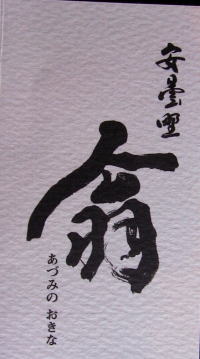 安曇野
翁
あづみの おきな